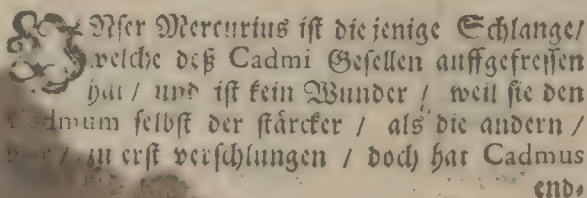 UNser Mercurius ist die jenige Schlange/
welche deß Cadmi Gesellen auffgefressen
hat / und ist kein Wunder / weil sie den
Cadmum selbst der stärcker / als die andern /
zu erst verschlungen / doch hat Cadmus
end-